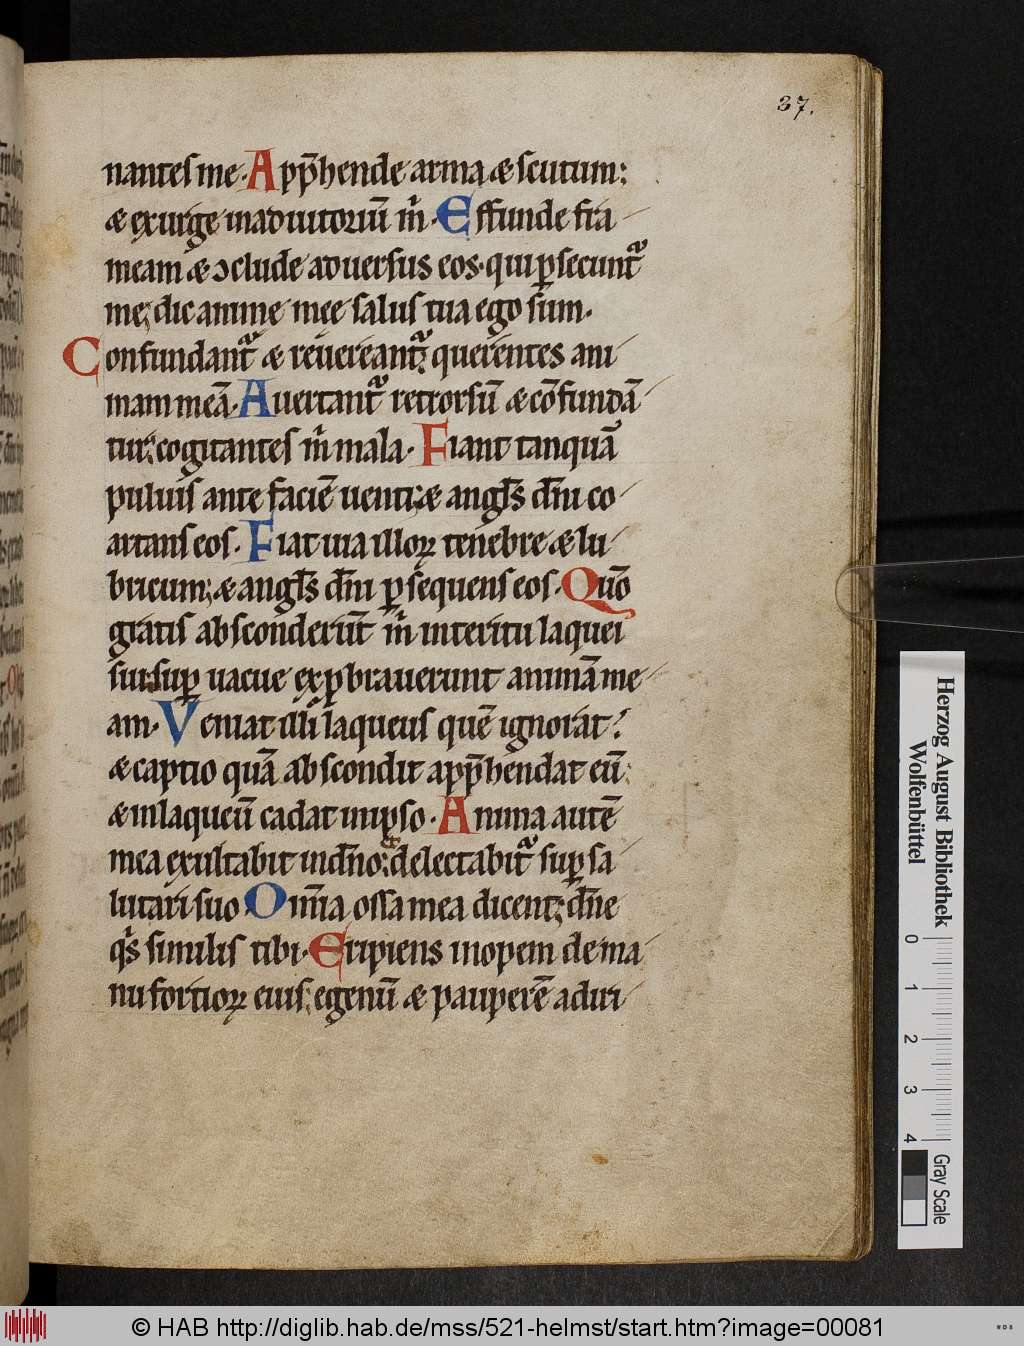 37.
nantes me. App̄hende arma & scutum:
& exurge in adiutoriū m̄. Effunde fra
meam & ↄclude aduersus eos. qui ꝑsecuntᷣ
me; dic anime mee salus tua ego sum.
Confundantᷣ & reuereantᷣ; querentes ani
mam meā. Auertantᷣ retrorsū & cōfundā
tur; cogitantes m̄ mala. Fiant tanquā
puluis ante faciē uenti; & angl̄s dn̄i co
artans eos. Fiat uia illoꝝ tenebre & lu
bricum; & angl̄s dn̄i ꝑsequens eos. Quō
gratis absconderūt m̄ interitū laquei
sui; suꝑ uacue exꝓbrauerunt animā me
am. Veniat illi laqueus quē ignorat?
& captio quā abscondit app̄hendat eū:
& in laqueū cadat in ipso. Anima autē
mea exultabit in dn̄o; & delectabitᷣ suꝑ sa
lutari suo. Om̄ia ossa mea dicent; dn̄e
qⁱs similis tibi. Eripiens inopem de ma
nu fortioꝝ eius; egenū & pauperē a diri
Herzog August Bibliothek
Wolfenbüttel
0 1 2 3 4
Gray Scale
© HAB http://diglib.hab.de/mss/521-helmst/start.htm?image=00081